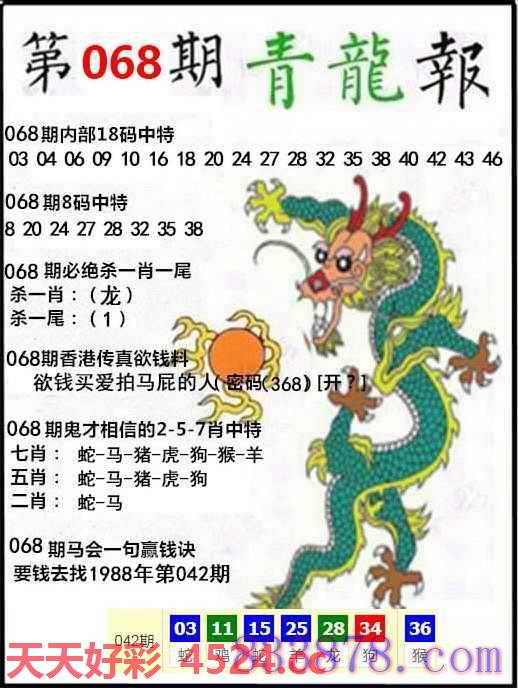 第068期青龍報
068期内部18码中特
03 04 06 09 10 16 18 20 24 27 28 32 35 38 40 42 43 46
068期8码中特
8 20 24 27 28 32 35 38
068期必绝杀一肖一尾
杀一肖:(龙)
杀一尾:(1)
068期香港传真欲钱料
欲钱买爱拍马屁的人(密码(368)[开?]
068期鬼才相信的2-5-7肖中特
七肖: 蛇-马-猪-虎-狗-猴-羊
五肖: 蛇-马-猪-虎-狗
二肖: 蛇-马
068期马会一句赢钱诀
要钱去找1988年第042期
042期 03 11 15 25 28 34 36
蛇 鸡 蛇 羊 龙 狗 猴
天天好彩 4524.cc
878.com